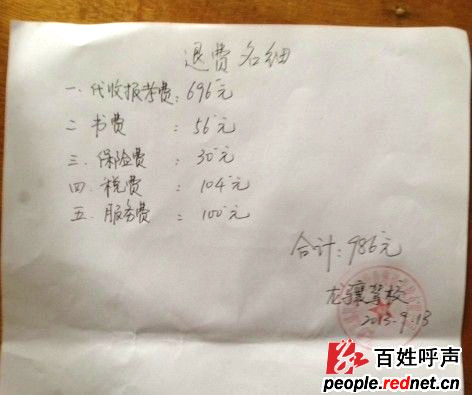 退费名细
一、代收报考费:696元
二 书费:56元
三、保险费:30元
四、税费:104元
五、服务费:100元
合计:986元
龙骧驾校
2013.9.13
红 百姓呼声
people.rednet.cn